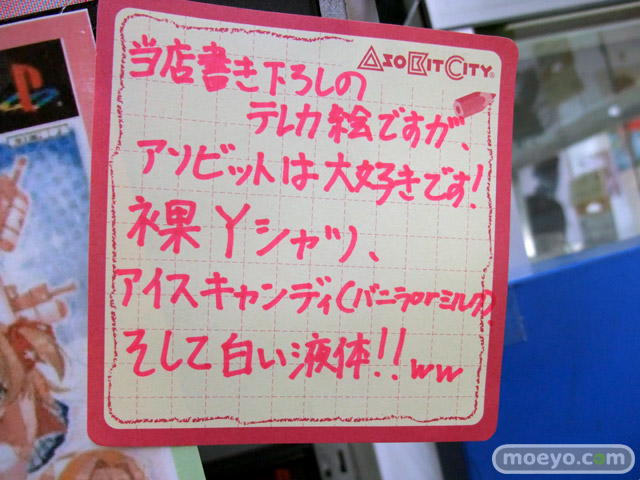 AsoBitCity®
当店書き下ろしの
テレカ絵ですが、
アソビットは大好きです!
裸Yシャツ、
アイスキャンディ(バニラorミルク)
そして白い液体!!ww
moeyo.com